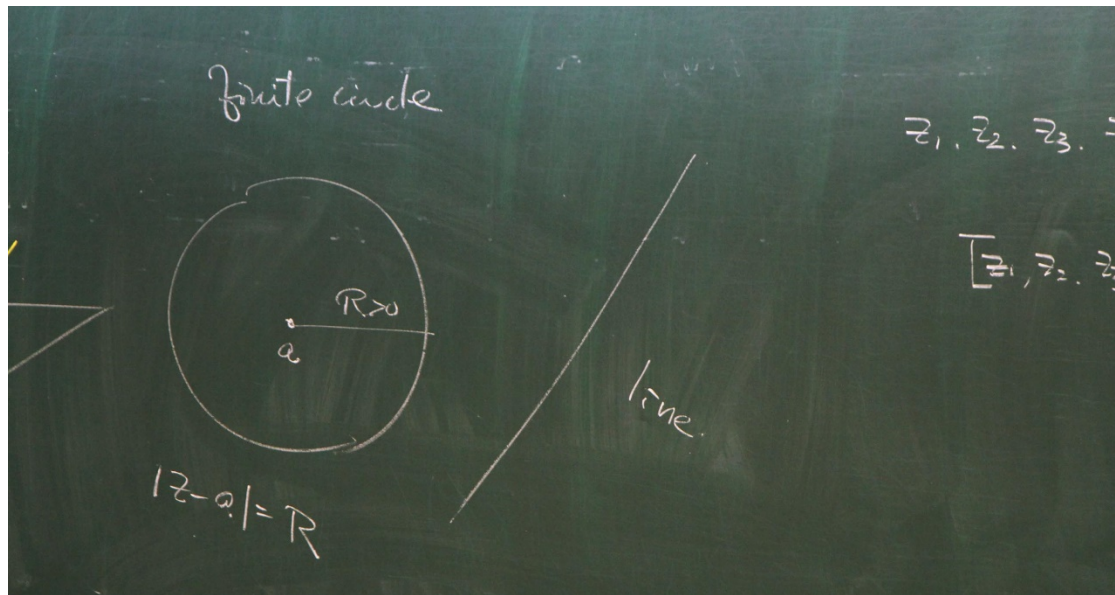 finite circle
R>0
a
|z-a|=R
line.
z₁, z₂, z₃,
[z₁, z₂, z₃